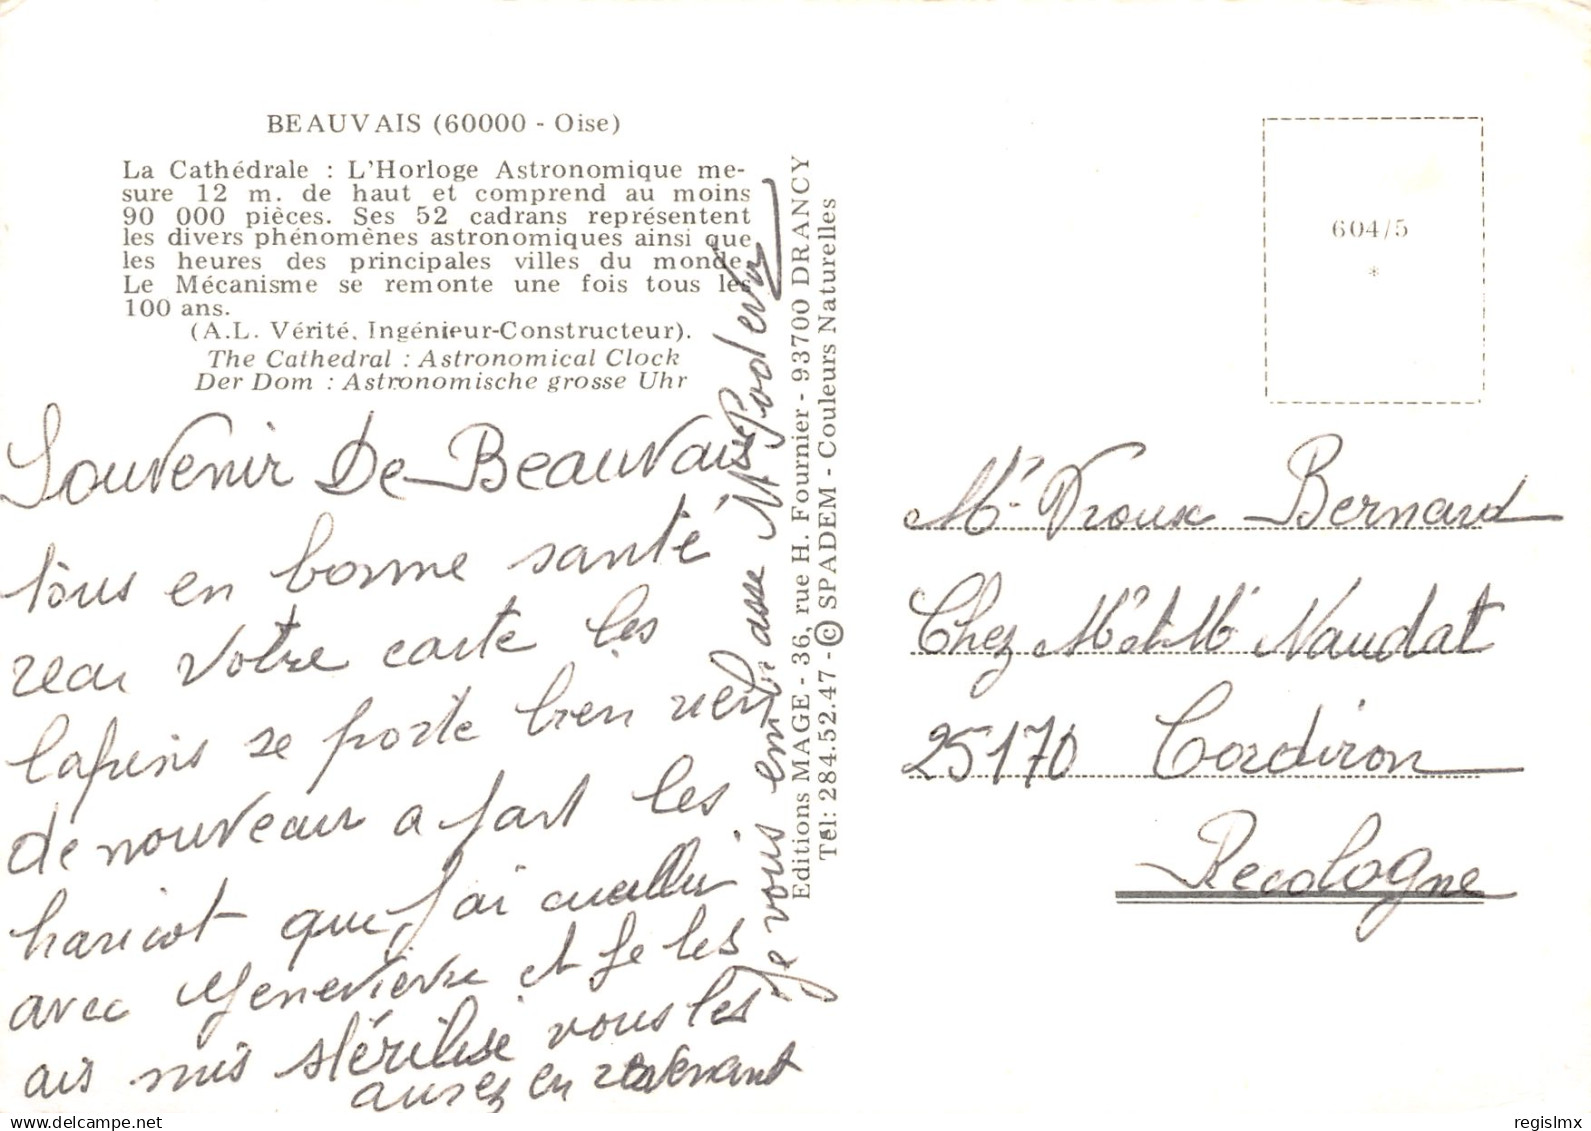 BEAUVAIS (60000 - Oise)
La Cathédrale : L'Horloge Astronomique me-
sure 12 m. de haut et comprend au moins
90 000 pièces. Ses 52 cadrans représentent
les divers phénomènes astronomiques ainsi que
les heures des principales villes du monde.
Le Mécanisme se remonte une fois tous les
100 ans.
(A.L. Vérité, Ingénieur-Constructeur).
The Cathedral : Astronomical Clock
Der Dom : Astronomische grosse Uhr
Souvenir De Beauvais
tous en bonne santé
recu votre carte les
lapins se porte bien rien
de nouveau a fait les
haricot que j'ai cueilli
avec Genevieve et je les
ais mis stérilisé vous les
aurez en revenant
je vous embrasse
Editions MAGE - 36, rue H. Fournier - 93700 DRANCY
Tél: 284.52.47 - © SPADEM - Couleurs Naturelles
604/5
*
Mr Droux Bernard
Chez Mr et Me Naudat
25170 Cordiron
Recologne
regislmx